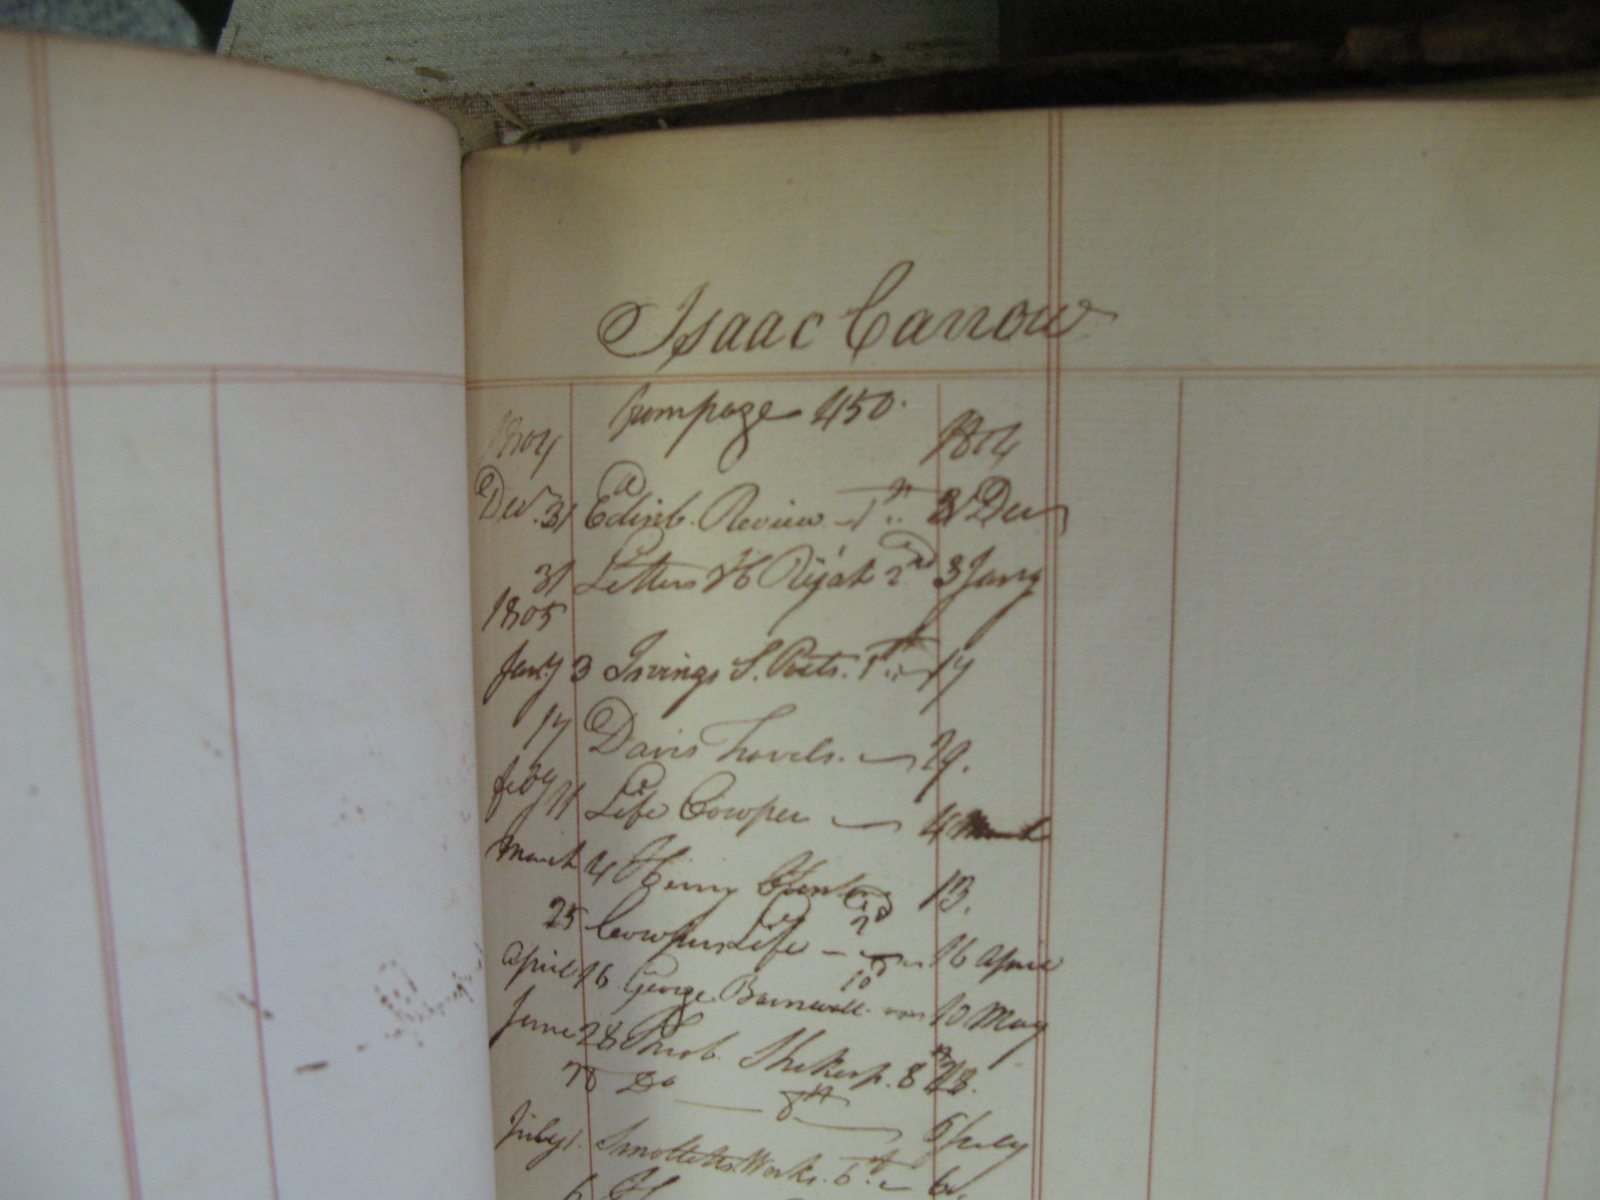 Isaac Carrow
from page 450.
1804 1804
Decr. 31 Edinb. Review 1st 31 Decr
31 Letters H Riját 2nd 3 Jany
1805
Jany 3 Irvings S. Poets. 1st 17
17 Davis Travels. 29.
Feby 21 Life Cowper 4 March
March 4 Henry 13.
25 Cowpers Life 2d 16 April
April 16 George Barnwell 10 10 May
June 28 Theob. Shakesp. 8th 28.
28 Do 8th 5 July
July 1. Smolletts Works. 6th 6.
6